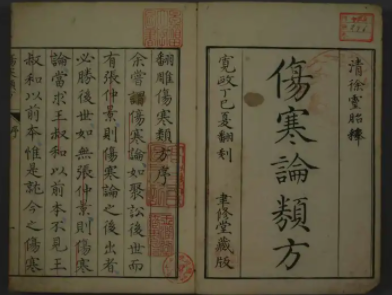 清徐靈昭
傷寒論類方
寛政丁巳夏翻刻
聿修堂藏版
翻雕傷寒類方序
余嘗謂傷寒論如聚訟後世而
有張仲景則傷寒論之後出者
必勝後世如無張仲景則傷寒
論當求王叔和以前本不見王
叔和以前本惟是就今之傷寒
序